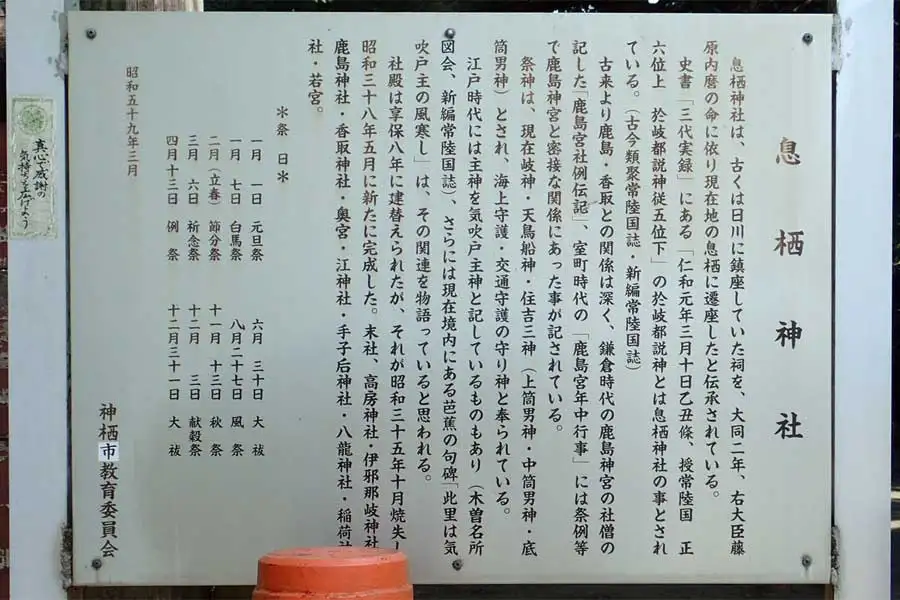 息栖神社
息栖神社は、古くは日川に鎮座していた祠を、大同二年、右大臣藤
原内麿の命に依り現在地の息栖に遷座したと伝承されている。
史書「三代実録」にある「仁和元年三月十日乙丑條、授常陸国 正
六位上 於岐都説神従五位下」の於岐都説神とは息栖神社の事とされ
ている。(古今類聚常陸国誌・新編常陸国誌)
古来より鹿島・香取との関係は深く、鎌倉時代の鹿島神宮の社僧の
記した「鹿島宮社例伝記」、室町時代の「鹿島宮年中行事」には祭例等
で鹿島神宮と密接な関係にあった事が記されている。
祭神は、現在岐神・天鳥船神・住吉三神(上筒男神・中筒男神・底
筒男神)とされ、海上守護・交通守護の守り神と奉られている。
江戸時代には主神を気吹戸主神と記しているものもあり(木曽名所
図会、新編常陸国誌)、さらには現在境内にある芭蕉の句碑「此里は気
吹戸主の風寒し」は、その関連を物語っていると思われる。
社殿は享保八年に建替えられたが、それが昭和三十五年十月焼失し
昭和三十八年五月に新たに完成した。末社、高房神社・伊邪那岐神社
鹿島神社・香取神社・奥宮・江神社・手子后神社・八龍神社・稲荷神
社・若宮。
*祭 日*
一月 一日 元旦祭 六月 三十日 大 祓
一月 七日 白馬祭 八月二十七日 風 祭
二月(立春) 節分祭 十一月 十三日 秋 祭
三月 六日 祈念祭 十二月 三日 献穀祭
四月十三日 例 祭 十二月三十一日 大 祓
昭和五十九年三月
神栖市教育委員会
真心と感謝の
気持ちを広げよう